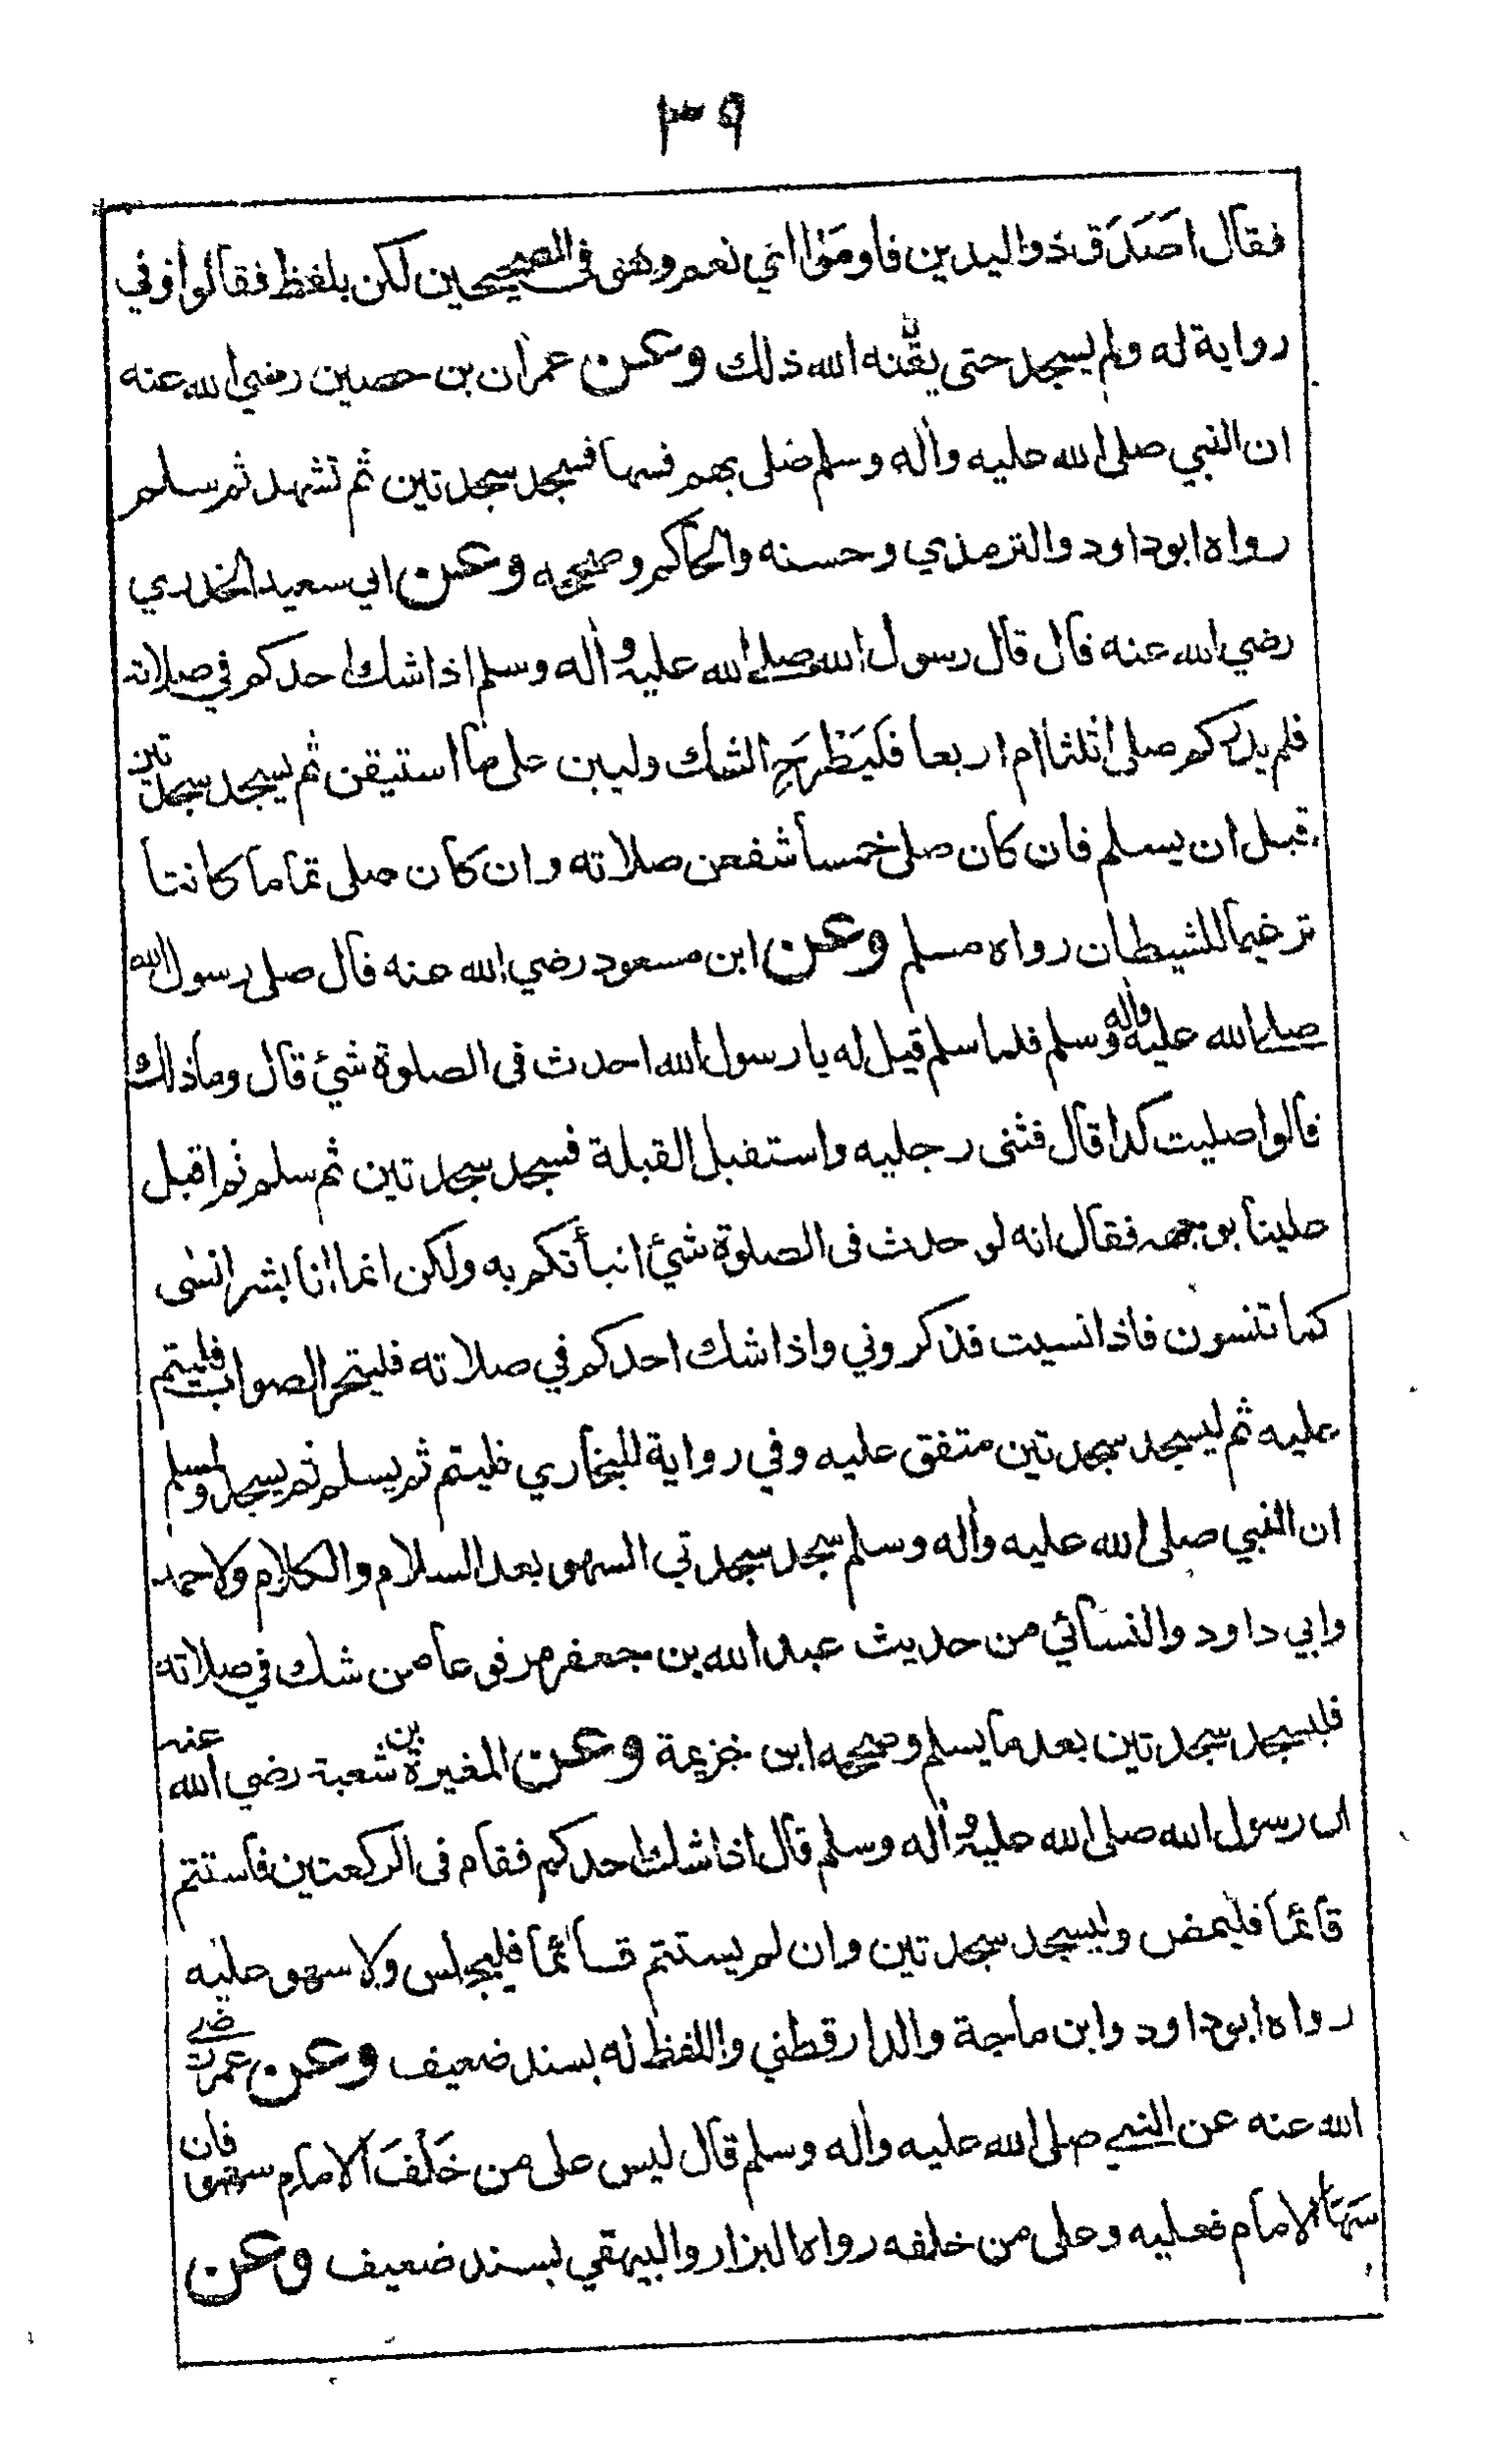 ٣٩
فقال اصَدَقَ ذواليدين فاومَؤا اي نعم وهو في الصحيحين لكن بلفظ فقالوا وفي
رواية له ولم يسجد حتى يقّنه الله ذلك وعن عمران بن حصين رضي الله عنه
ان النبي صلى الله عليه واٰله وسلم صلى بهم فسها فسجد سجدتين ثم تشهد ثم سلم
رواه ابوداود والترمذي وحسنه والحاكم وصححه وعن ابي سعيد الخدري
رضي الله عنه قال قال رسول الله صلى الله عليه واٰله وسلم اذا شك احدكم في صلاته
فلم يدركم صلى اثلثا ام اربعا فليَطْرَحِ الشك وليبن على ما استيقن ثم يسجد سجدتين
قبل ان يسلم فان كان صلى خمسا شفعن صلاته وان كان صلى تماما كانتا
ترغيما للشيطان رواه مسلم وعن ابن مسعود رضي الله عنه قال صلى رسول الله
صلى الله عليه واٰله وسلم فلما سلم قيل له يا رسول الله احدث في الصلوة شئ قال وما ذلك
قالوا صليت كذا قال فثنى رجليه واستقبل القبلة فسجد سجدتين ثم سلم ثم اقبل
علينا بوجهه فقال انه لو حدث في الصلوة شئ انبأتكم به ولكن انما انا بشر انسى
كما تنسون فاذا نسيت فذكروني واذا شك احدكم في صلاته فليتحر الصواب فليتم
عليه ثم ليسجد سجدتين متفق عليه وفي رواية للبخاري فليتم ثم يسلم ثم يسجد ولمسلم
ان النبي صلى الله عليه واٰله وسلم سجد سجدتي السهو بعد السلام والكلام ولاحمد
وابي داود والنسائي من حديث عبد الله بن جعفر مرفوعا من شك في صلاته
فليسجد سجدتين بعد ما يسلم وصححه ابن خزيمة وعن المغيرة بن شعبة رضي الله عنه
ان رسول الله صلى الله عليه واٰله وسلم قال اذا شك احدكم فقام في الركعتين فاستتم
قائما فليمض وليسجد سجدتين وان لم يستتم قائما فليجلس ولا سهو عليه
رواه ابوداود وابن ماجة والدارقطني واللفظ له بسند ضعيف وعن عمر رضي
الله عنه عن النبي صلى الله عليه واٰله وسلم قال ليس على من خَلْفَ الامام سهو فان
سَهَا الامام فعليه وعلى من خلفه رواه البزار والبيهقي بسند ضعيف وعن